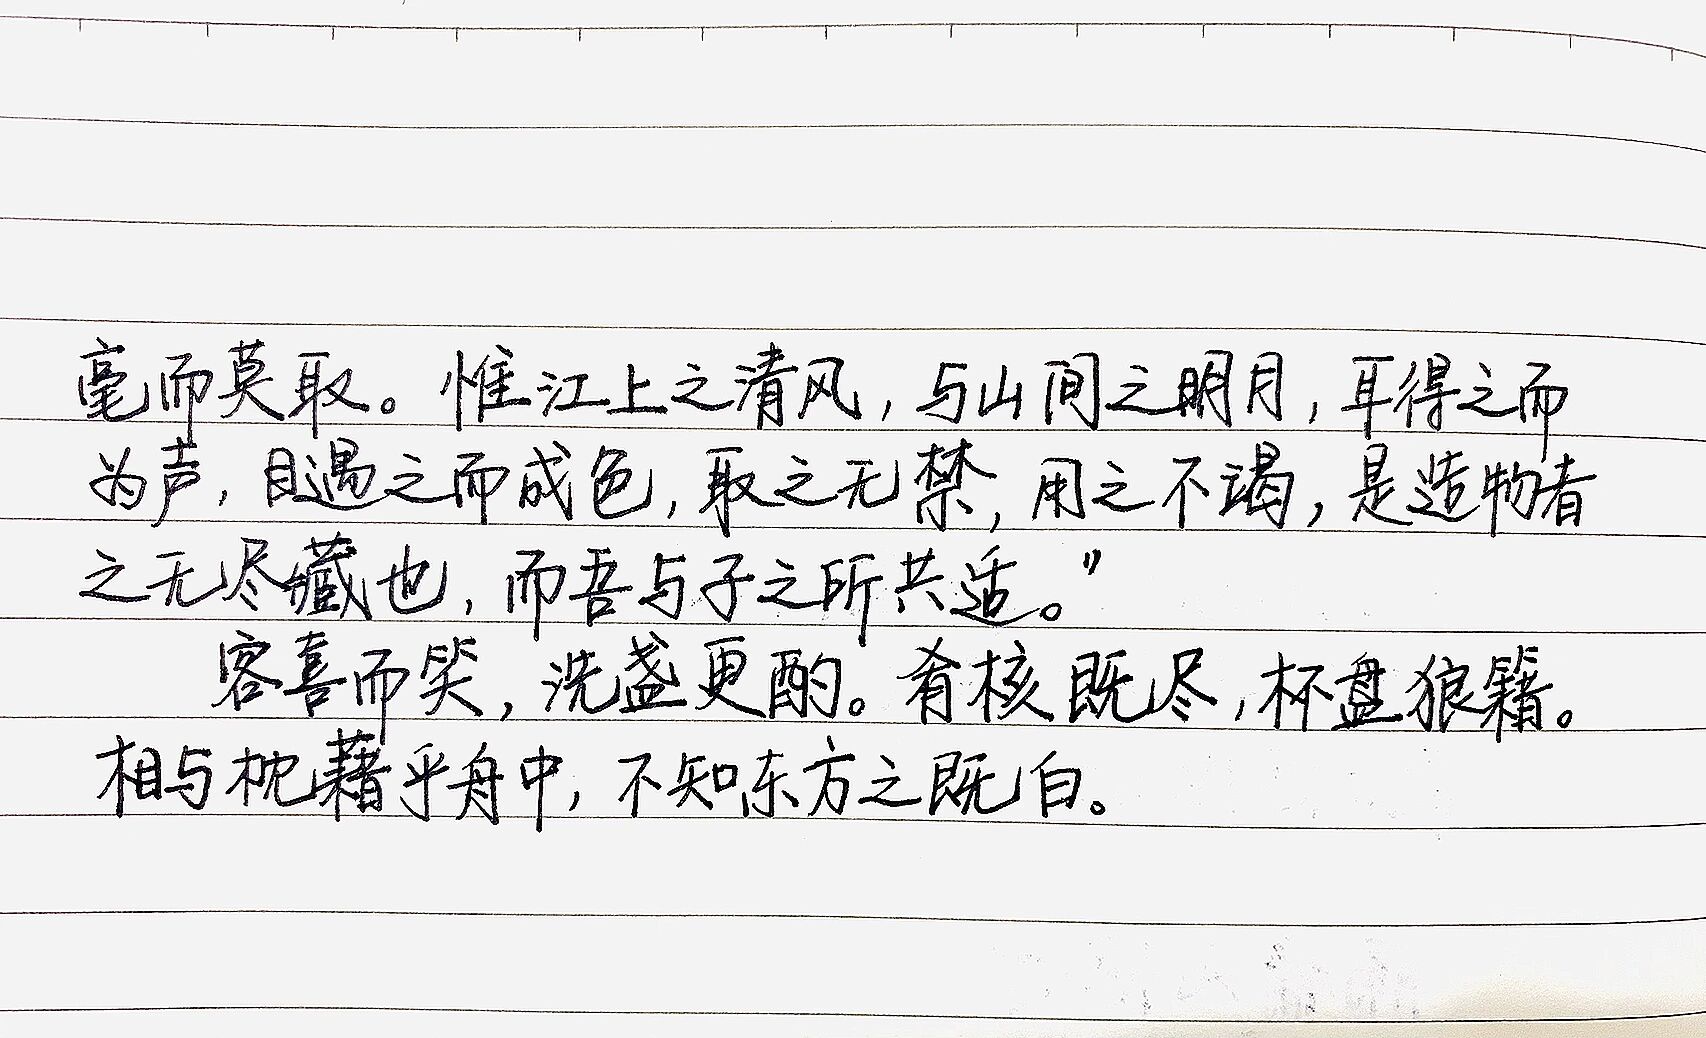 毫而莫取。惟江上之清风，与山间之明月，耳得之而
为声，目遇之而成色，取之无禁，用之不竭，是造物者
之无尽藏也，而吾与子之所共适。”
客喜而笑，洗盏更酌。肴核既尽，杯盘狼籍。
相与枕藉乎舟中，不知东方之既白。